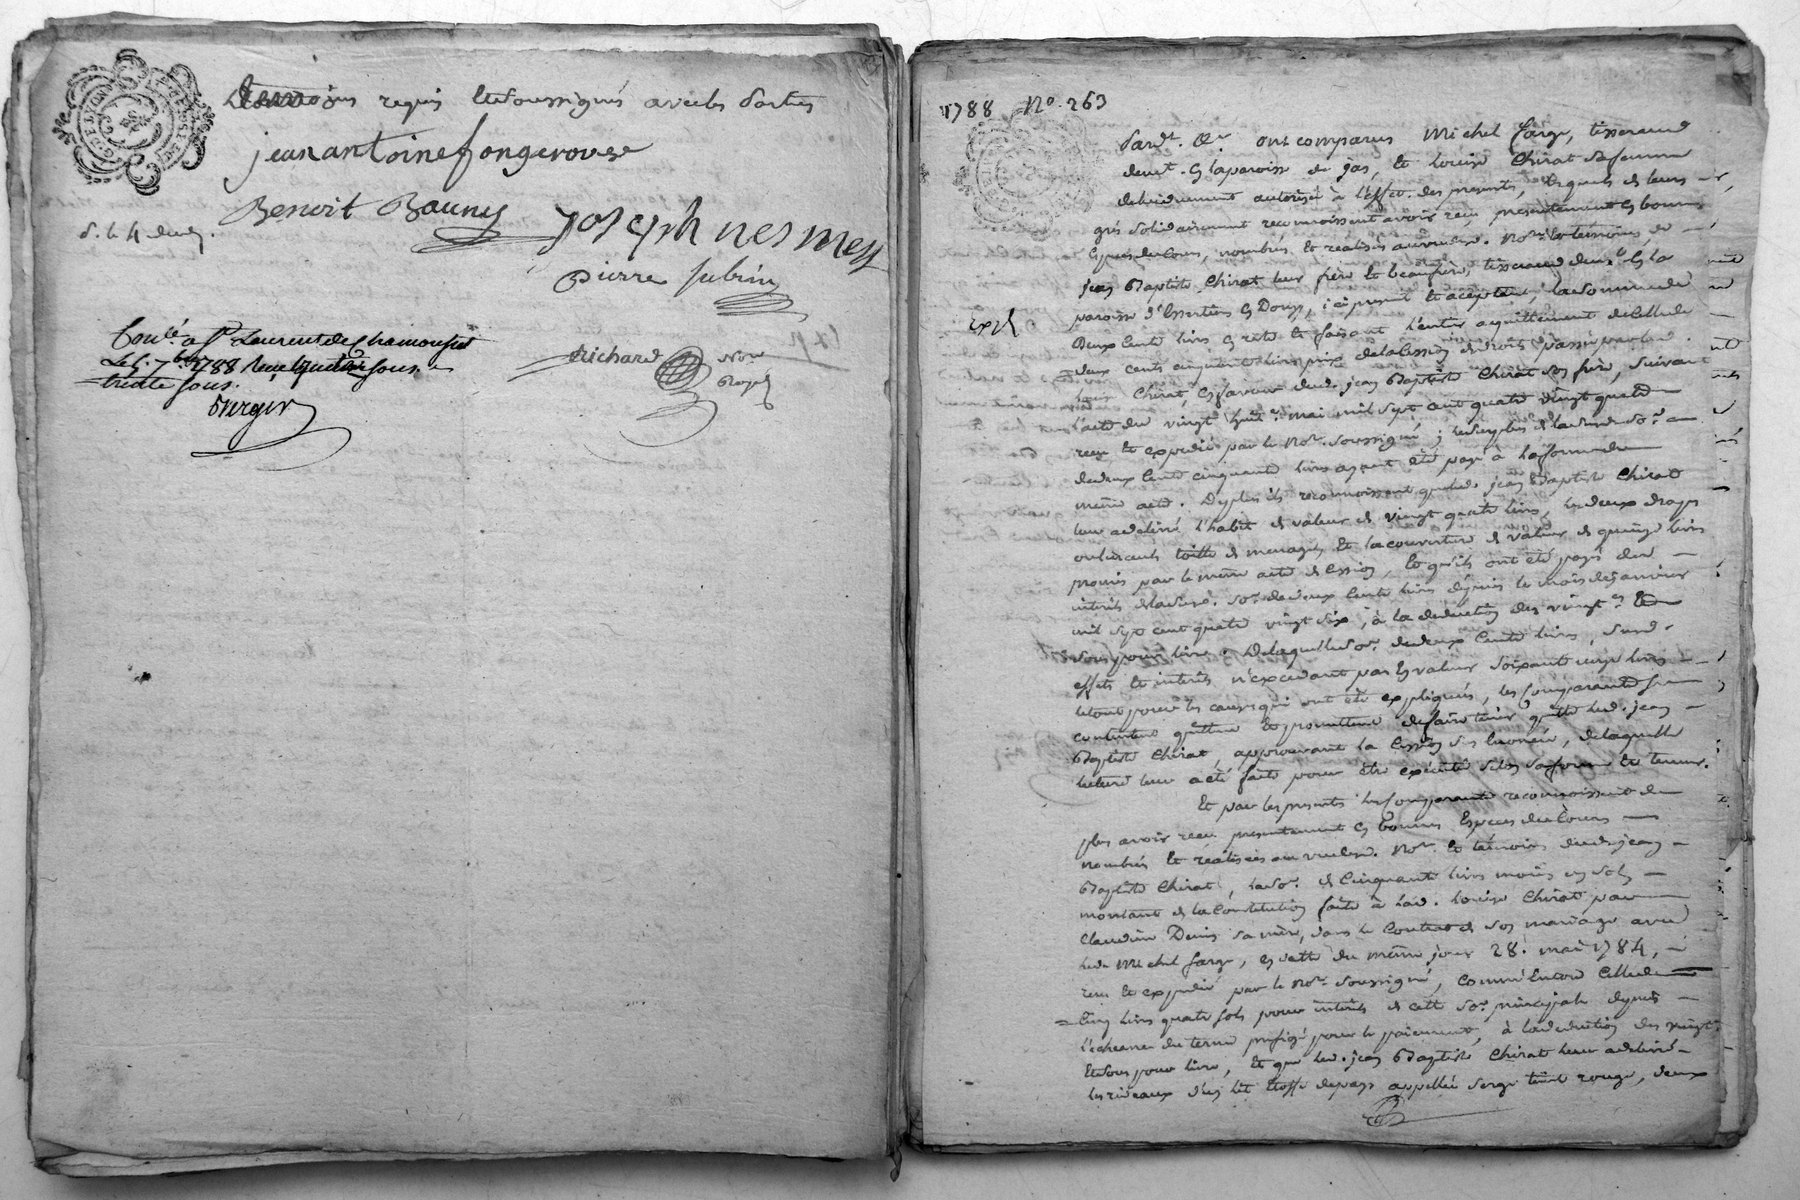 témoins requis et soussignés avec les parties
jean antoine fongerouse
Benoit Bauny
d. le 4 du d.
joseph nesmes
Pierre Subrin
Con.lé a St Laurent de Chamousset
Le 5. 7.bre 1788 Reçu
trente sous.
Richard Not.re
Royal
Verger
1788 N.o 263
Pard.t &.a ont comparus Michel farge, tisserand
demt. en la paroisse de jas, et Louise Chirat sa femme
de lui duement autorisée à l'effet des presentes, lesquels de leurs
grés solidairement reconnoissent avoir reçu presentement en bonnes
Especes de Cours, nombrées et realisées au vu dud. No.re et témoins, de
jean Baptiste Chirat leur frère et beaufrère, tisserand demt. en la
paroisse d'Essertines en Donzy, ici present et acceptant, la somme de
exp
Deux Cents livres en reste et faisant l'entier acquittement de Celle de
deux cents cinquante livres prix de la Cession de droits passée par lad.
Louise Chirat, en faveur dud. jean Baptiste Chirat son frère, suivant
l'acte du vingt huit mai mil sept cent quatre vingt quatre
reçu et expedié par le No.re soussigné; le surplus de lad. so.e
de deux Cents cinquante livres ayant été payé à la forme du
même acte. De plus ils reconnoissent que led. jean Baptiste Chirat
leur a délivré l'habit de valeur de vingt quatre livres, les deux draps
toille de menage, et la couverture de valeur de quinze livres
promis par le même acte de Cession, et qu'ils ont été payés des
interets de lad. so.e de deux Cents livres depuis le mois de janvier
mil sept cent quatre vingt six, à la deduction des vingt.es et
sous pour livre. De laquelle so.e de deux Cents livres,
effets et interets n'excedant pas en valeur soixante livres
le tout pour les causes qui ont été expliquées, les Comparants se
contentent quittent et promettent de faire tenir quitte led. jean
Baptiste Chirat, approuvant la Cession sus énoncée, de laquelle
lecture leur a été faite pour être exécutée selon sa forme et teneur.
Et par les presentes les Comparants reconnoissent de
plus avoir reçu presentement en bonnes Especes de Cours
nombrées et réalisées au vu dud. No.re et témoins dud. jean
Baptiste Chirat, la so.e de Cinquante livres moins un sol,
montant de la Constitution faite à lad. Louise Chirat par
Claudine Denis sa mère, dans le Contrat de son mariage avec
led. Michel farge, en datte du même jour 28. mai 1784,
reçu et expedié par le No.re soussigné, comme Encore Celle de
Cinq livres quatre sols pour interets de cette so.e principale depuis
l'echeance du terme prefigé pour le paiement, à la deduction des vingt.es
et sous pour livre, et que led. jean Baptiste Chirat leur a délivré
les rideaux d'un lit Etoffe de pays appellée serge teint rouge, deux